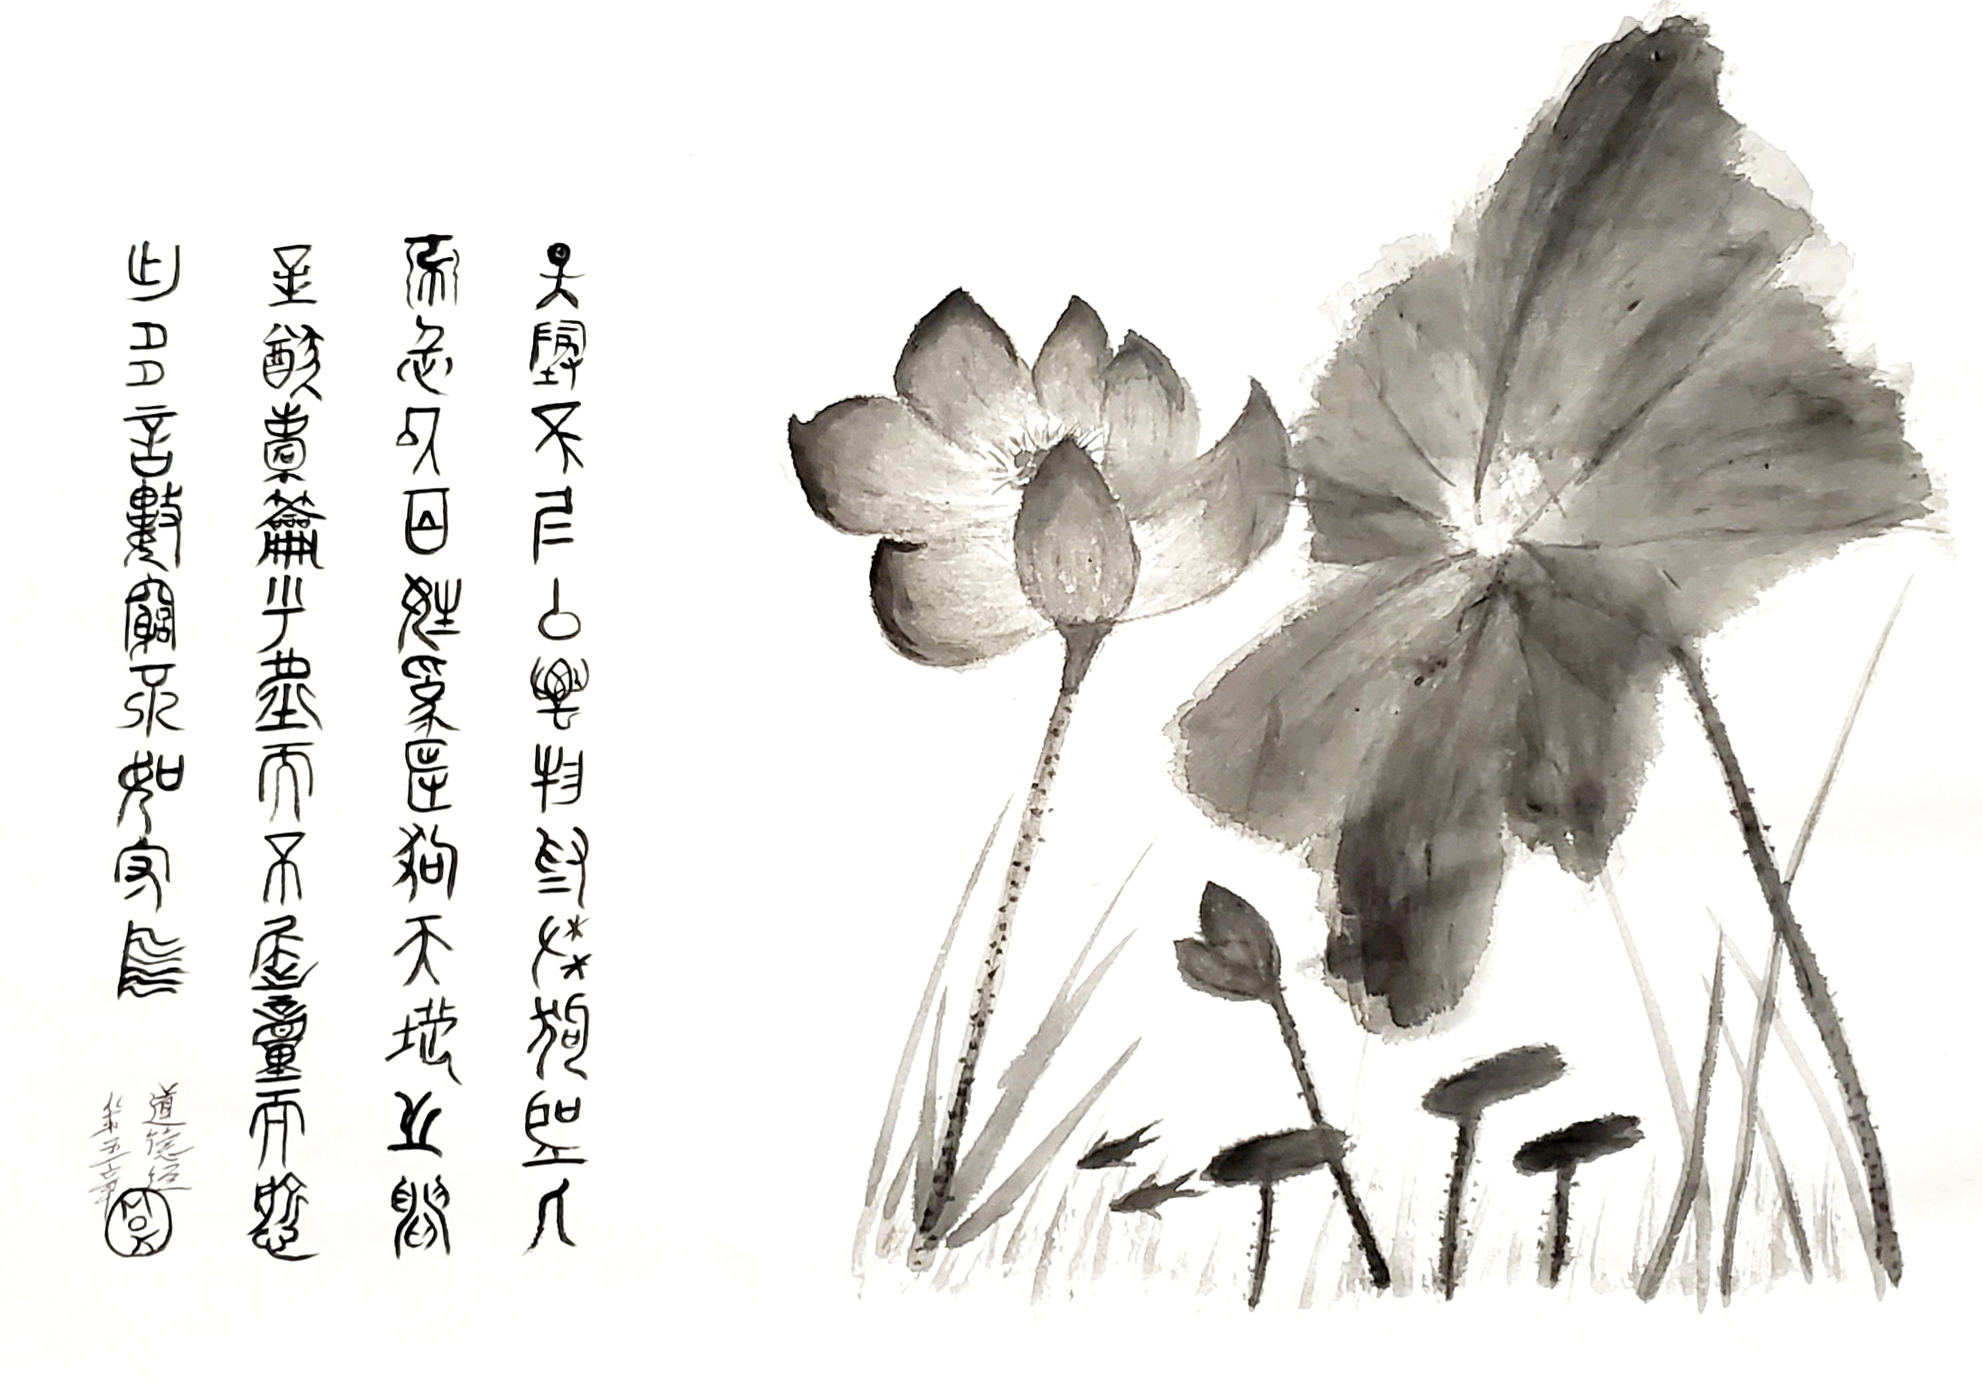 天地不仁以萬物為芻狗聖人
不仁以百姓為芻狗天地之間
其猶橐籥乎虛而不屈動而愈
出多言數窮不如守中
道德经
第五章